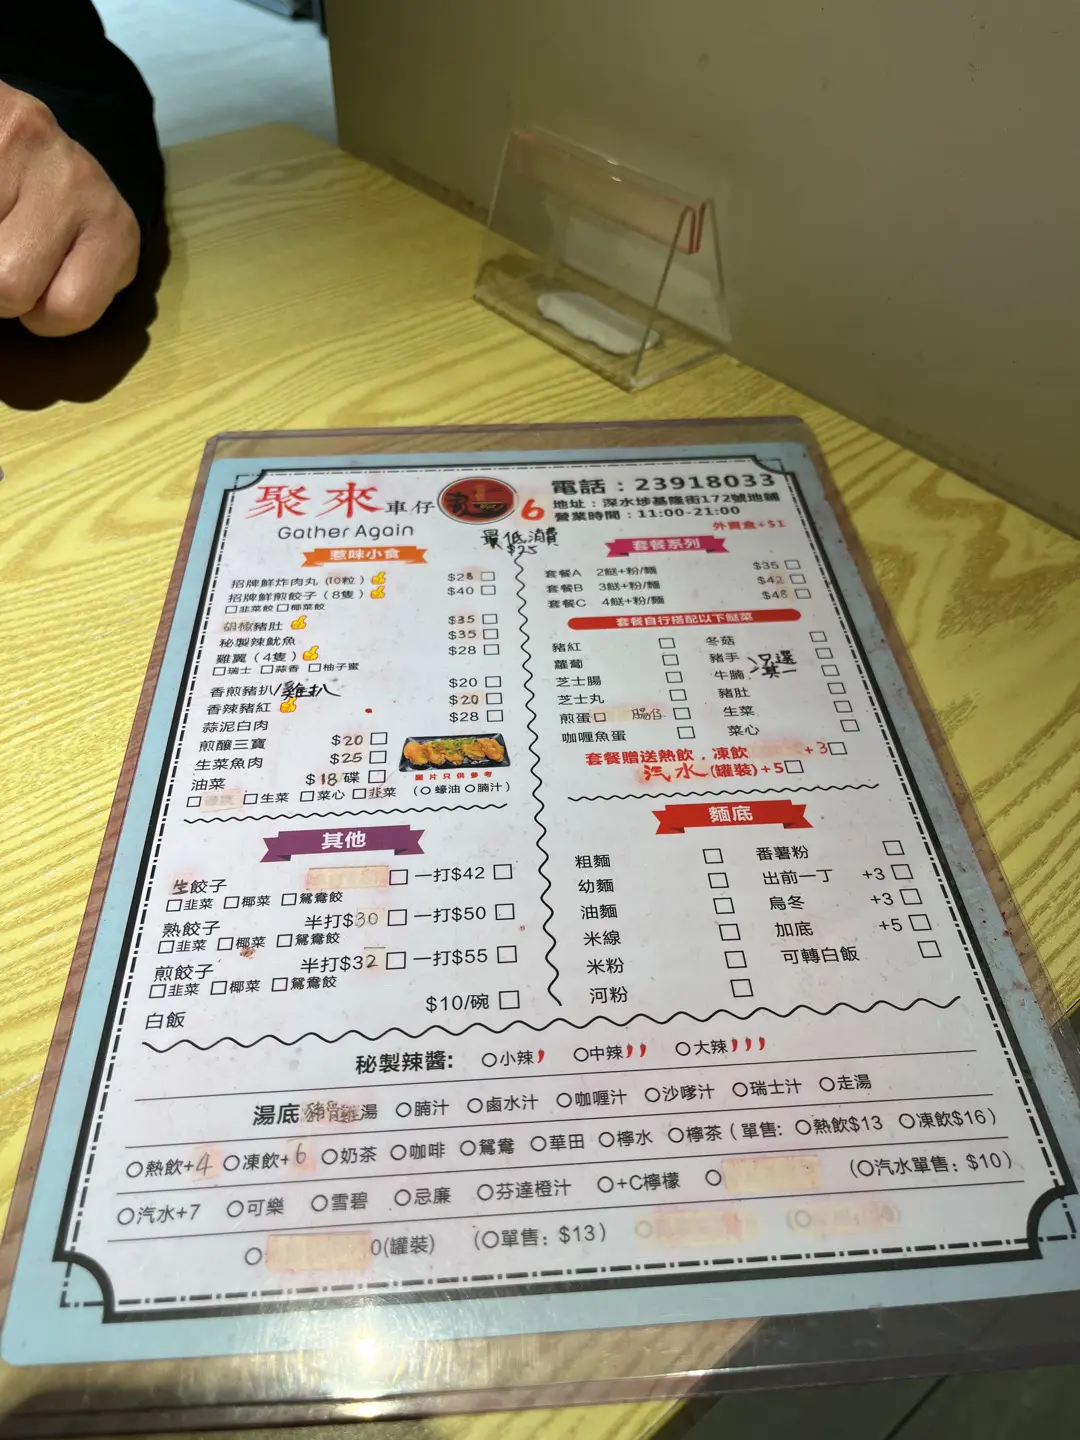 聚來車仔麵 6
Gather Again
最低消費
$25
電話：23918033
地址：深水埗基隆街172號地舖
營業時間：11:00-21:00
外賣盒+$1
惹味小食
招牌鮮炸肉丸（10粒） $28
招牌鮮煎餃子（8隻） $40
韭菜餃 椰菜餃
胡椒豬肚 $35
秘製辣魷魚 $35
雞翼（4隻） $28
瑞士 蒜香 柚子蜜
香煎豬扒/雞扒 $20
香辣豬紅 $20
蒜泥白肉 $28
煎釀三寶 $20
生菜魚肉 $25
油菜 $18碟
生菜 菜心 韭菜 （蠔油 腩汁）
圖片只供參考
套餐系列
套餐A 2餸+粉/麵 $35
套餐B 3餸+粉/麵 $42
套餐C 4餸+粉/麵 $48
套餐自行搭配以下餸菜
豬紅 冬菇
蘿蔔 豬手
芝士腸 牛腩
芝士丸 豬肚
煎蛋 腸仔 生菜
咖喱魚蛋 菜心
只選其一
套餐贈送熱飲，凍飲 +3
汽水(罐裝)+5
其他
生餃子 一打$42
韭菜 椰菜 鴛鴦餃
熟餃子 半打$30 一打$50
韭菜 椰菜 鴛鴦餃
煎餃子 半打$32 一打$55
韭菜 椰菜 鴛鴦餃
白飯 $10/碗
麵底
粗麵 番薯粉
幼麵 出前一丁 +3
油麵 烏冬 +3
米線 加底 +5
米粉 可轉白飯
河粉
秘製辣醬: 小辣 中辣 大辣
湯底 豬骨雞湯 腩汁 鹵水汁 咖喱汁 沙嗲汁 瑞士汁 走湯
熱飲+4 凍飲+6 奶茶 咖啡 鴛鴦 華田 檸水 檸茶（單售: 熱飲$13 凍飲$16）
汽水+7 可樂 雪碧 忌廉 芬達橙汁 +C檸檬 （汽水單售：$10）
0(罐裝) （單售：$13）